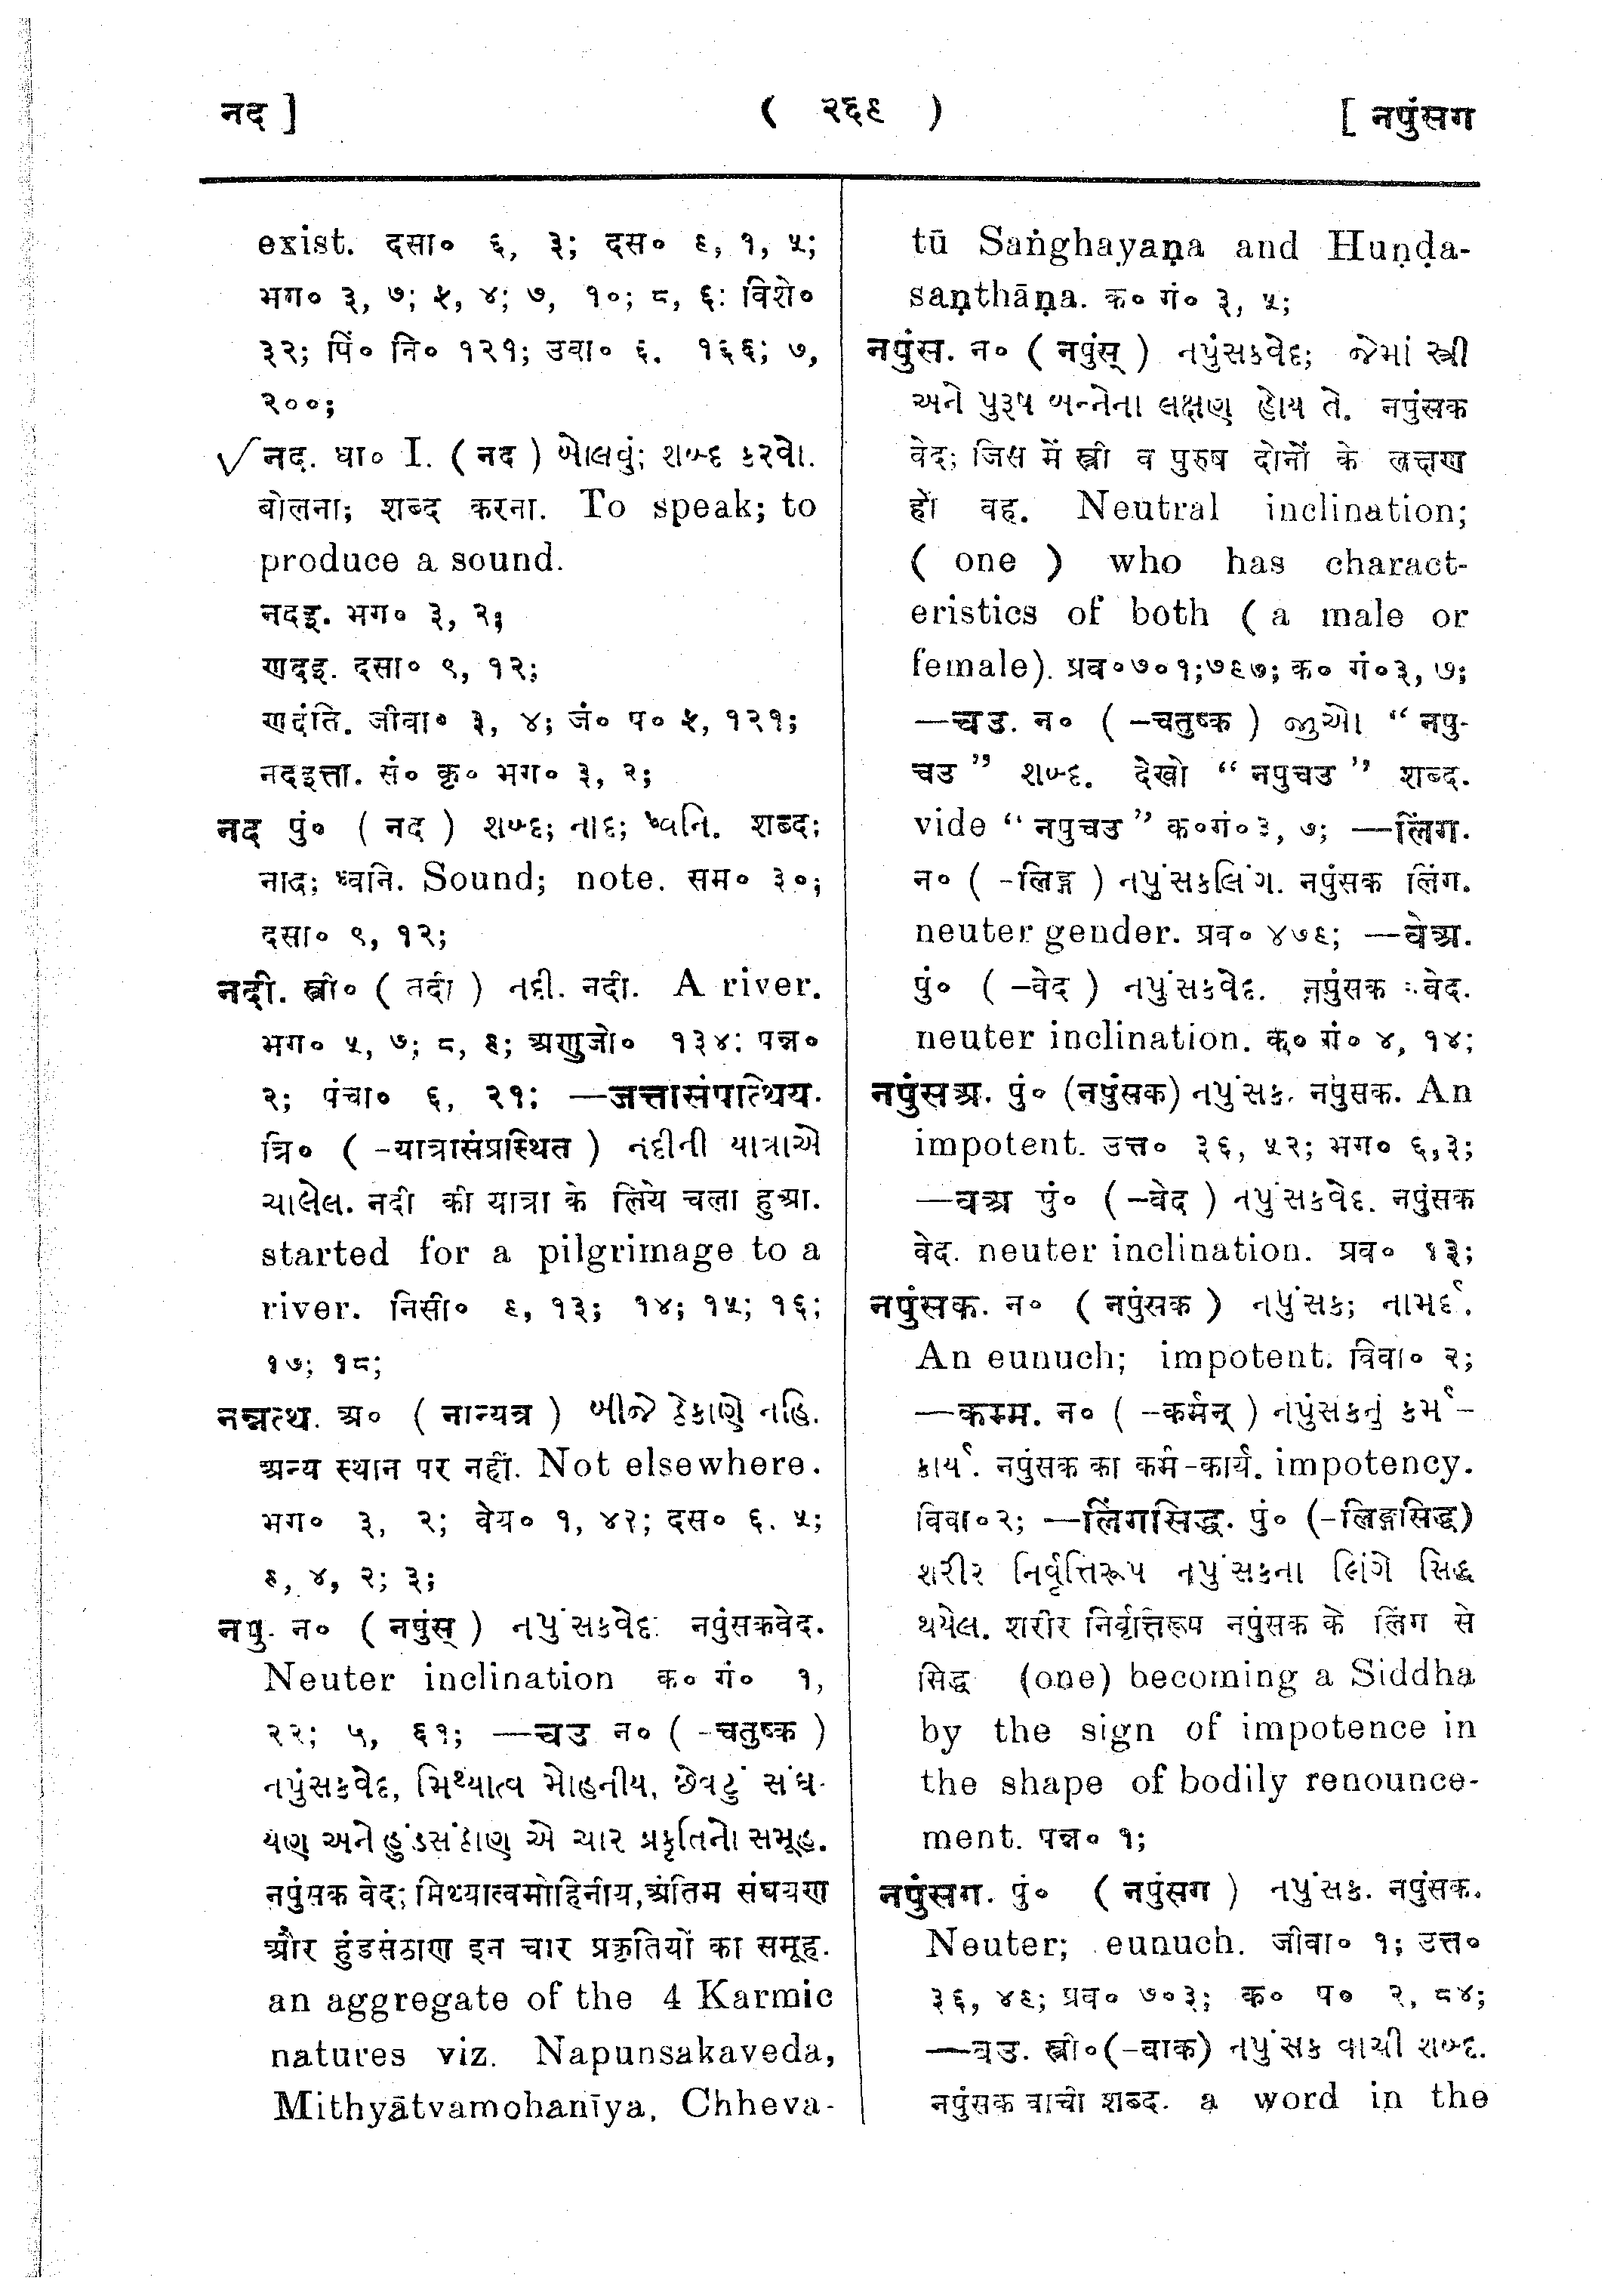 नद ]
( २६९ )
[ नपुंसग
exist. दसा० ६, ३; दस० ९, १, ५;
भग० ३, ७; ५, ४; ७, १०; ८, ६: विशे०
३२; पिं० नि० १२१; उवा० ६. १६६; ७,
२००;
√ नद. धा० I. ( नद ) બોલવું; શબ્દ કરવો.
बोलना; शब्द करना. To speak; to
produce a sound.
नदइ. भग० ३, २;
णदइ. दसा० ९, १२;
णदंति. जीवा० ३, ४; जं० प० ५, १२१;
नदइत्ता. सं० कृ० भग० ३, २;
नद् पुं० ( नद ) શબ્દ; નાદ; ધ્વનિ. शब्द;
नाद; ध्वनि. Sound; note. सम० ३०;
दसा० ९, १२;
नदी. स्त्री० ( नदी ) નદી. नदी. A river.
भग० ५, ७; ८, ९; अणुजो० १३४: पन्न०
२; पंचा० ६, २१; —जत्तासंपत्थिय.
त्रि० ( -यात्रासंप्रस्थित ) નદીની યાત્રાએ
ચાલેલ. नदी की यात्रा के लिये चला हुआ.
started for a pilgrimage to a
river. निसी० ९, १३; १४; १५; १६;
१७; १८;
नन्नत्थ. अ० ( नान्यत्र ) બીજે ઠેકાણે નહિ.
अन्य स्थान पर नहीं. Not elsewhere.
भग० ३, २; वेय० १, ४२; दस० ६. ५;
९, ४, २; ३;
नपु. न० ( नपुंस् ) નપુંસકવેદ. नपुंसकवेद.
Neuter inclination क० गं० १,
२२; ५, ६१; —चउ न० ( -चतुष्क )
નપુંસકવેદ, મિથ્યાત્વ મોહનીય, છેવટું સંઘ-
યણ અને હુંડસંઠાણ એ ચાર પ્રકૃતિનો સમૂહ.
नपुंसक वेद; मिथ्यात्वमोहिनीय, अंतिम संघयण
और हुंडसंठाण इन चार प्रकृतियों का समूह.
an aggregate of the 4 Karmic
natures viz. Napunsakaveda,
Mithyātvamohanīya, Chheva-
tū Saṅghayaṇa and Huṇḍa-
saṇthāṇa. क० गं० ३, ५;
नपुंस. न० ( नपुंस् ) નપુંસકવેદ; જેમાં સ્ત્રી
અને પુરૂષ બન્નેના લક્ષણ હોય તે. नपुंसक
वेद; जिस में स्त्री व पुरुष दोनों के लक्षण
हों वह. Neutral inclination;
( one ) who has charact-
eristics of both ( a male or
female). प्रव०७०१;७९७; क० गं०३, ७;
—चउ. न० ( -चतुष्क ) જુઓ “ नपु-
चउ ” શબ્દ. देखो “ नपुचउ ” शब्द.
vide “ नपुचउ ” क०गं०३, ७; —लिंग.
न० ( -लिङ्ग ) નપુંસકલિંગ. नपुंसक लिंग.
neuter gender. प्रव० ४७९; —वेअ.
पुं० ( -वेद ) નપુંસકવેદ. नपुंसक वेद.
neuter inclination. क० गं० ४, १४;
नपुंसअ. पुं० (नपुंसक) નપુંસક. नपुंसक. An
impotent. उत्त० ३६, ५२; भग० ६,३;
—वअ पुं० ( -वेद ) નપુંસકવેદ. नपुंसक
वेद. neuter inclination. प्रव० १३;
नपुंसक. न० ( नपुंसक ) નપુંસક; નામર્દ.
An eunuch; impotent. विवा० २;
—कम्म. न० ( -कर्मन् ) નપુંસકનું કર્મ-
કાર્ય. नपुंसक का कर्म-कार्य. impotency.
विवा०२; —लिंगसिद्ध. पुं० (-लिङ्गसिद्ध)
શરીર નિર્વૃત્તિરૂપ નપુંસકના લિંગે સિદ્ધ
થયેલ. शरीर निर्वृत्तिरूप नपुंसक के लिंग से
सिद्ध (one) becoming a Siddha
by the sign of impotence in
the shape of bodily renounce-
ment. पन्न० १;
नपुंसग. पुं० ( नपुंसग ) નપુંસક. नपुंसक.
Neuter; eunuch. जीवा० १; उत्त०
३६, ४९; प्रव० ७०३; क० प० २, ८४;
—वउ. स्त्री०(-वाक) નપુંસક વાચી શબ્દ.
नपुंसक वाची शब्द. a word in the